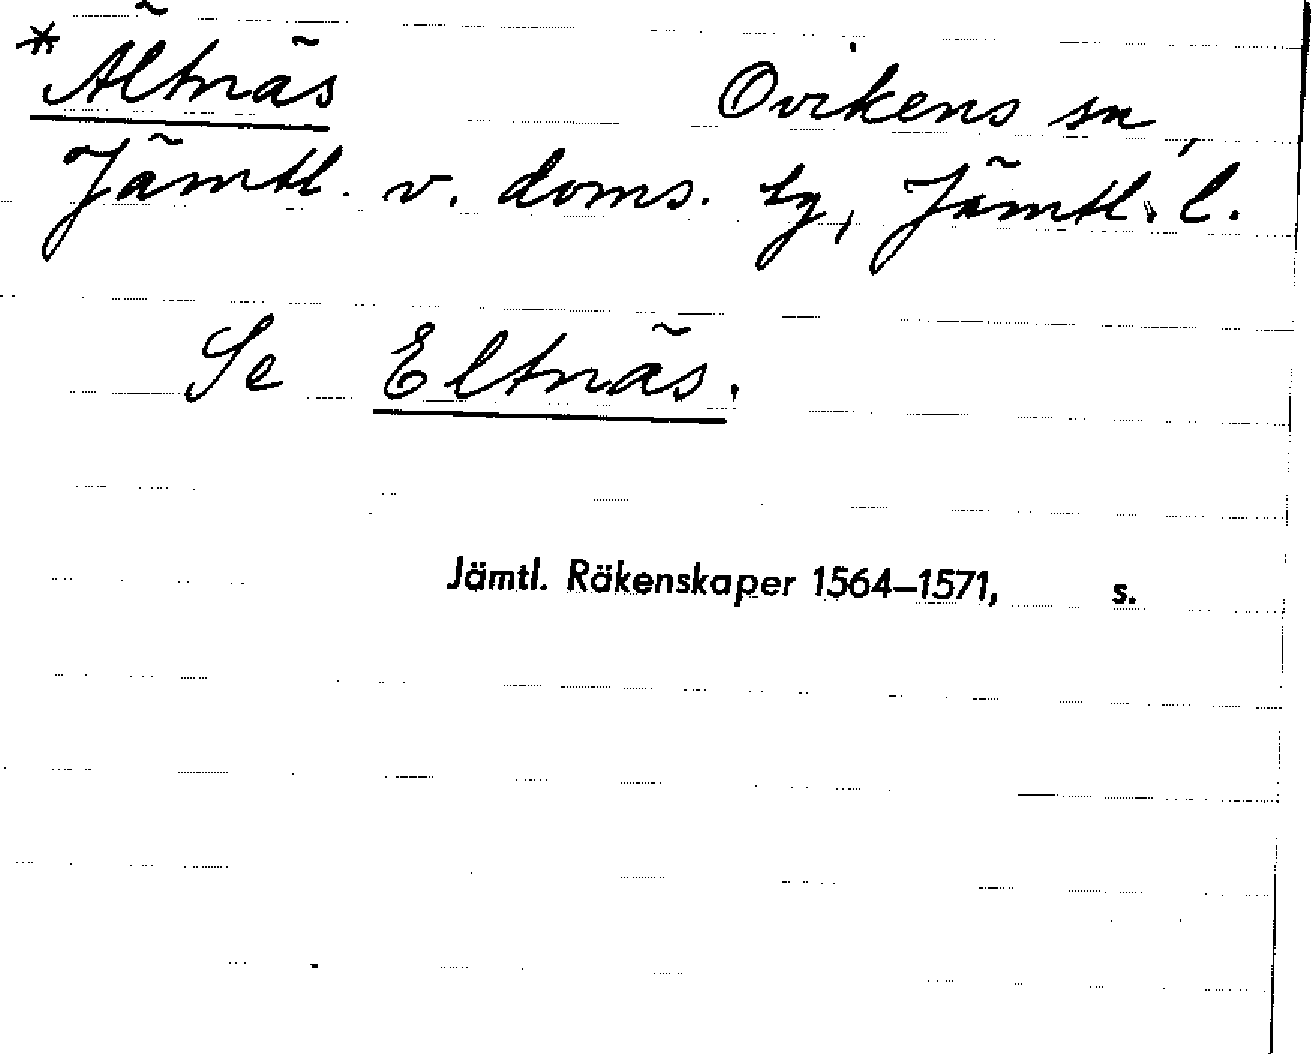 *Ältnäs Ovikens sn,
Jämtl. v. doms. tg, Jämtl. l.
Se Eltnäs.
Jämtl. Räkenskaper 1564–1571, s.